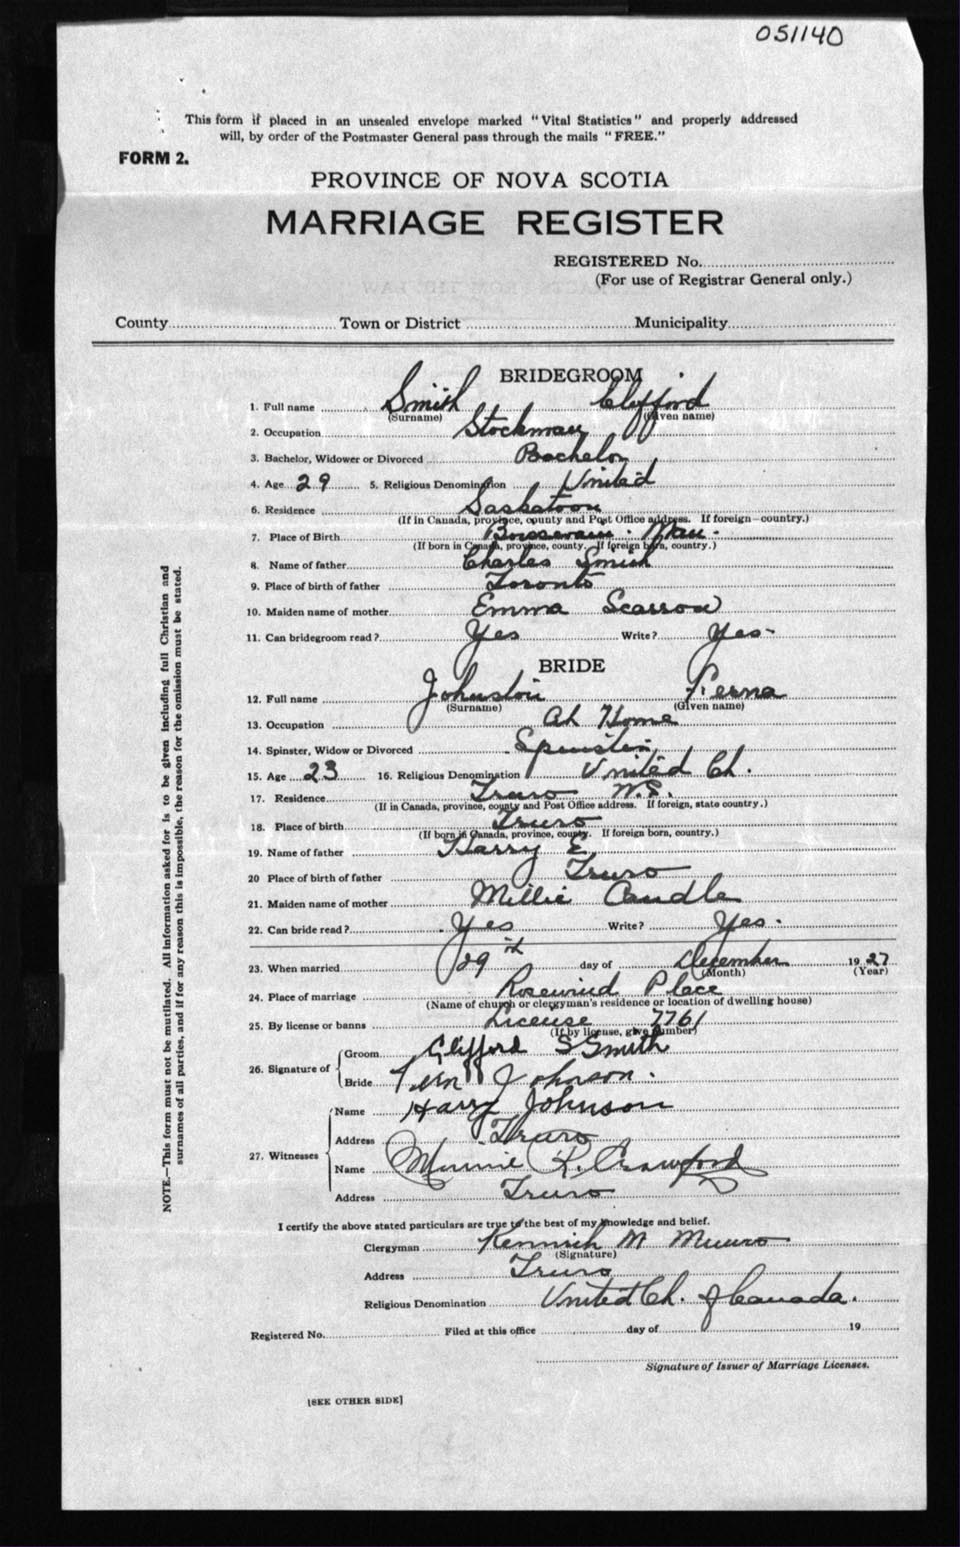 051140
This form if placed in an unsealed envelope marked "Vital Statistics" and properly addressed
will, by order of the Postmaster General pass through the mails "FREE."
FORM 2.
PROVINCE OF NOVA SCOTIA
MARRIAGE REGISTER
REGISTERED No.
(For use of Registrar General only.)
County Town or District Municipality
BRIDEGROOM
1. Full name Smith Clifford
(Surname) (Given name)
2. Occupation Stockman
3. Bachelor, Widower or Divorced Bachelor
4. Age 29 5. Religious Denomination United
6. Residence Saskatoon
(If in Canada, province, county and Post Office address. If foreign—country.)
7. Place of Birth Boissevain. Man.
(If born in Canada, province, county. If foreign born, country.)
8. Name of father Charles Smith
9. Place of birth of father Toronto
10. Maiden name of mother Emma Scarrow
11. Can bridegroom read? Yes Write? Yes-
BRIDE
12. Full name Johnston Ferna
(Surname) (Given name)
13. Occupation At Home
14. Spinster, Widow or Divorced Spinster
15. Age 23 16. Religious Denomination United Ch.
17. Residence Truro N.S.
(If in Canada, province, county and Post Office address. If foreign, state country.)
18. Place of birth Truro
(If born in Canada, province, county. If foreign born, country.)
19. Name of father Harry E
20 Place of birth of father Truro
21. Maiden name of mother Millie Caudle
22. Can bride read? Yes Write? Yes.
23. When married 29th day of December 1927
(Month) (Year)
24. Place of marriage Place
(Name of church or clergyman's residence or location of dwelling house)
25. By license or banns License 7761
(If by license, give number)
26. Signature of
Groom Clifford S Smith
Bride Fern Johnson.
27. Witnesses
Name Harry Johnson
Address Truro
Name Minnie R. Crawford
Address Truro
I certify the above stated particulars are true to the best of my knowledge and belief.
Clergyman Kenneth M Munro
(Signature)
Address Truro
Religious Denomination United Ch. of Canada.
Registered No. Filed at this office day of 19
Signature of Issuer of Marriage Licenses.
[SEE OTHER SIDE]
NOTE.—This form must not be mutilated. All information asked for is to be given including full Christian and
surnames of all parties, and if for any reason this is impossible, the reason for the omission must be stated.